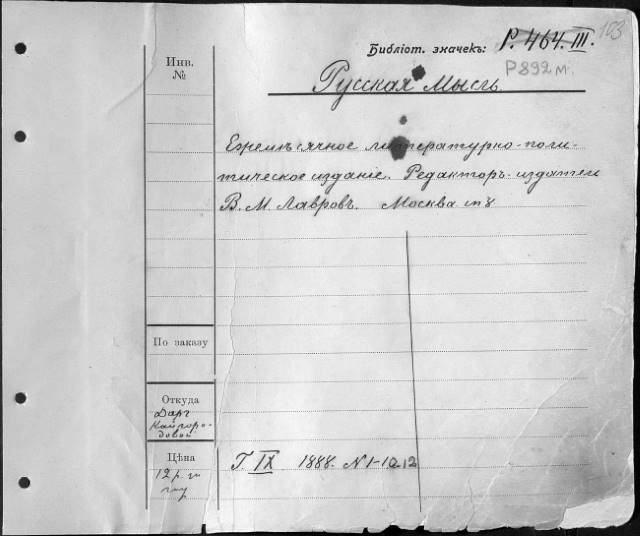 103
Библіот. значекъ: Р. 464. III.
Р892м.
Инв.
№
Русская Мысль
Ежемѣсячное литературно-поли-
тическое изданіе. Редакторъ-издатель
В. М. Лавровъ. Москва
По заказу
Откуда
Даръ
Кайгоро-
довой
Цѣна
12 р.
Г IX 1888. N 1-10, 12